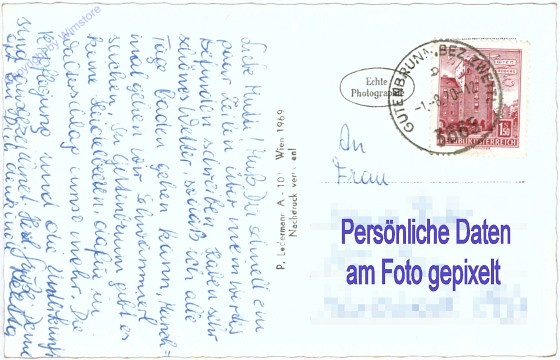 Liebe Mutti! Muß Dir schnell ein
paar Zeilen über mein wertes
Befinden schreiben. Haben sehr
schönes Wetter, sodaß ich alle
Tage baden gehen kann. Manch=
mal gehen wir Schwammerl
suchen. In Gutenbrunn gibt es
keine Heidelbeeren, dafür in
unsere mehr. Die
Verpflegung und die Unterkunft
sind ausgezeichnet. Herzl. Grüße Deine
an Dich
by Wimstore
P. Ledermann A - 101 Wien 1969
Nachdruck verboten!
Echte
Photographie
GUTENBRUNN, BEZ. ZWETTL
-1.-8.70-12
3665
1.50
REPUBLIK ÖSTERREICH
An
Frau
Persönliche Daten
am Foto gepixelt